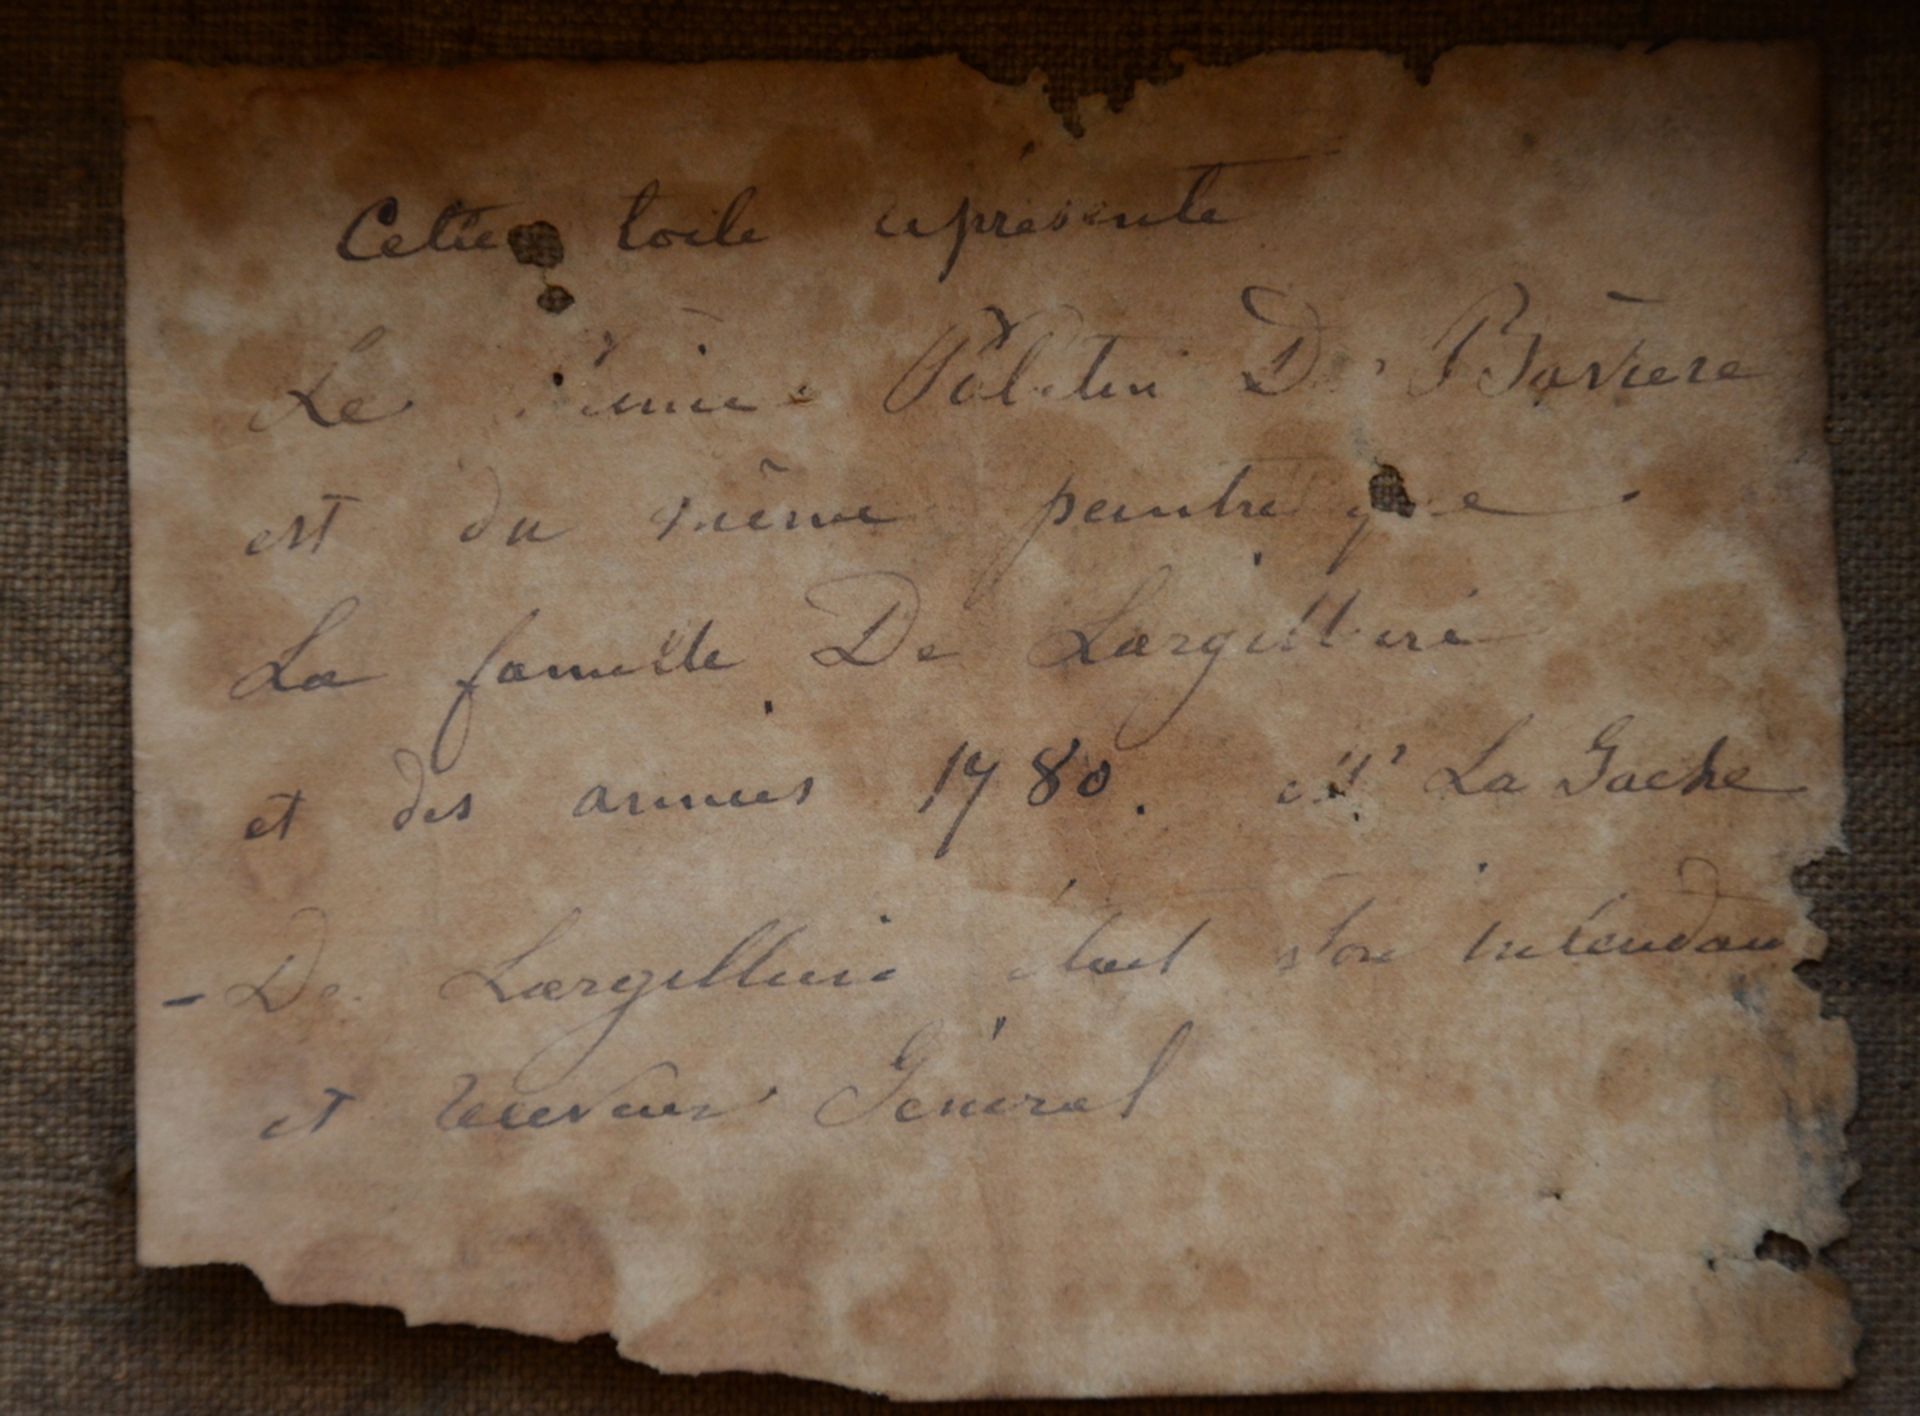 Cette toile représente
Le Palatin De Bavière
est du même peintre que
La famille De Largillière
et des années 1780. Mr La Gache
- De Largillière était son intendan
et receveur Général